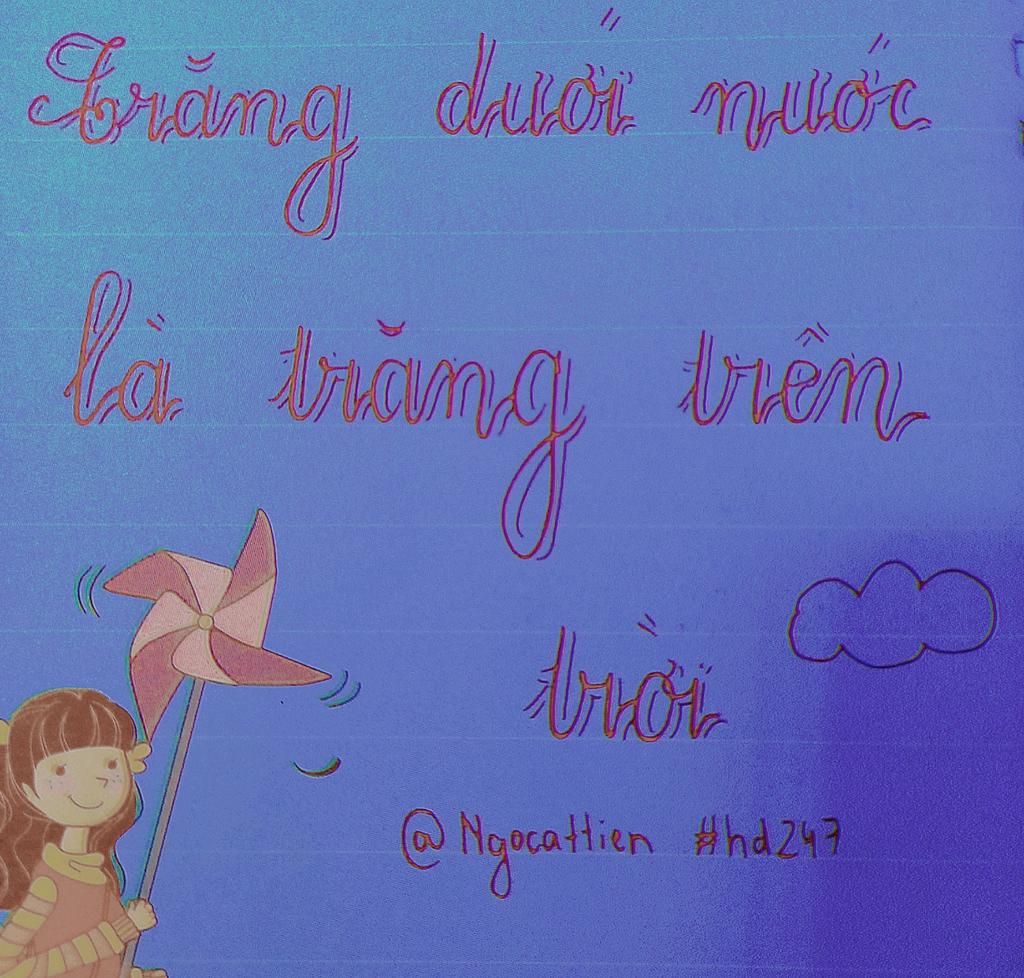 Trăng dưới nước
là trăng trên
trời
@Ngocattien #hd247